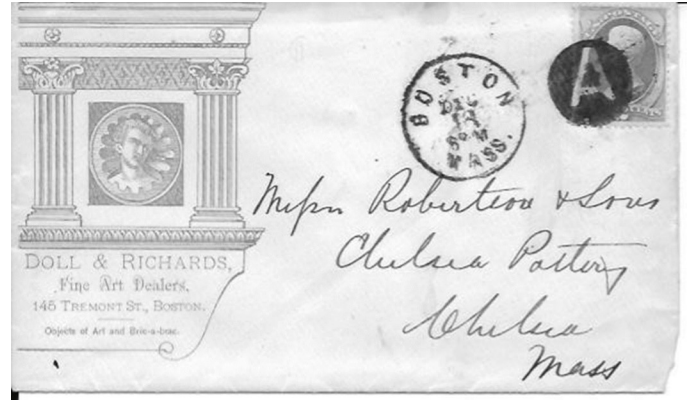 DOLL & RICHARDS,
Fine Art Dealers,
145 TREMONT ST., BOSTON.
Objects of Art and Bric-a-brac.
BOSTON
DEC
MASS.
A
Messrs Robertson & Sons
Chelsea Pottery
Chelsea
Mass